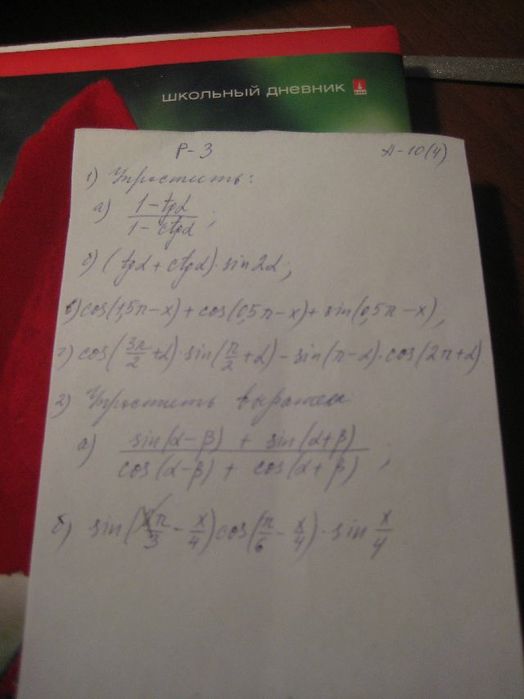 ШКОЛЬНЫЙ ДНЕВНИК
Р-3 А-10(4)
1) Упростить:
а) (1-tgα)/(1-ctgα);
б) (tgα+ctgα)·sin2α;
в) cos(1,5π-x)+cos(0,5π-x)+sin(0,5π-x),
г) cos(3π/2+α)·sin(π/2+α)-sin(π-α)·cos(2π+α)
2) Упростить выражен
а) (sin(α-β)+sin(α+β))/(cos(α-β)+cos(α+β));
б) sin(π/3-x/4)cos(π/6-x/4)·sin x/4